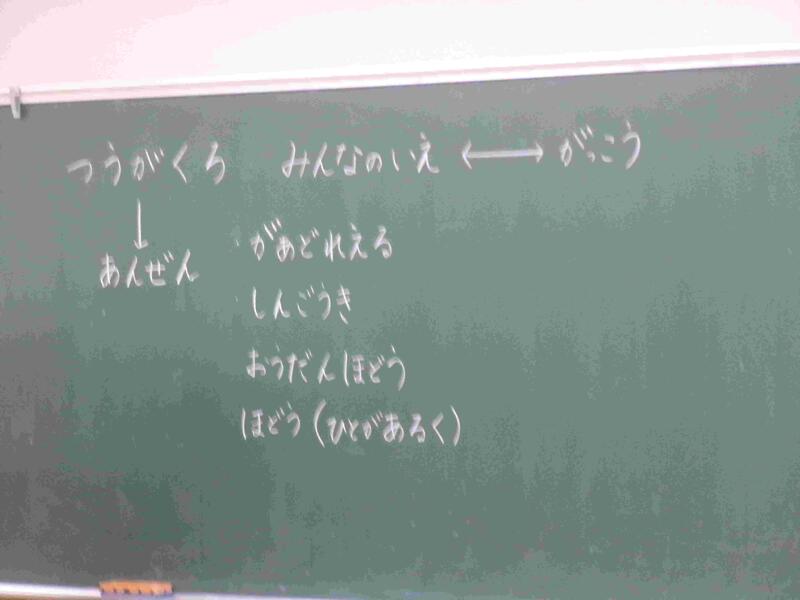 つうがくろ みんなのいえ ⟷ がっこう
↓
あんぜん
があどれえる
しんごうき
おうだんほどう
ほどう(ひとがあるく)